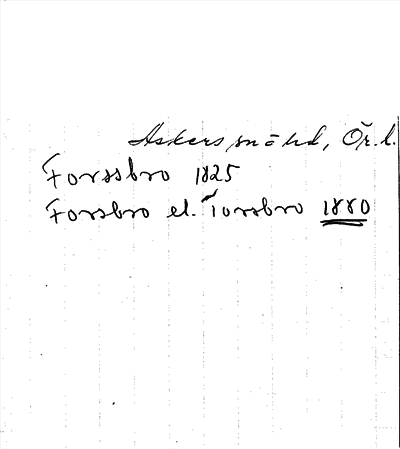 Askers sn o hd, Ör. l.
Forssbro 1825
Forsbro el. Torsbro 1880